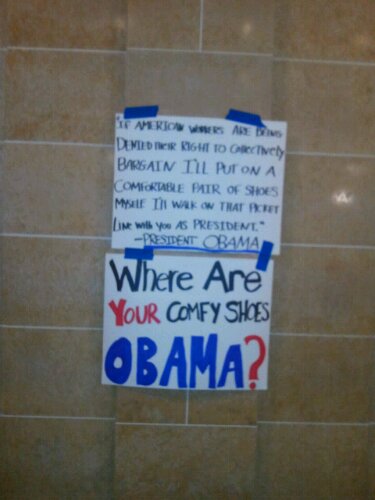 "IF AMERICAN WORKERS ARE BEING
DENIED THEIR RIGHT TO COLLECTIVELY
BARGAIN I'LL PUT ON A
COMFORTABLE PAIR OF SHOES
MYSELF I'll WALK ON THAT PICKET
LINE with YOU AS PRESIDENT."
-PRESIDENT OBAMA
Where Are
YOUR COMFY SHOES
OBAMA?